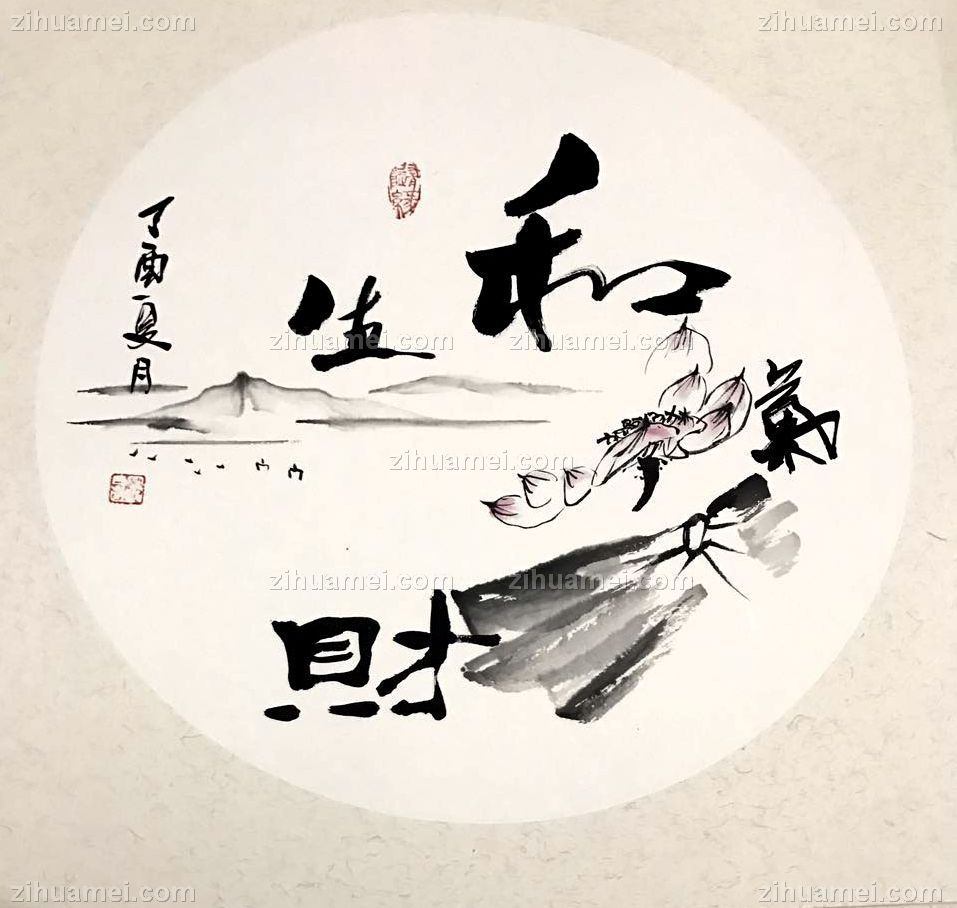 和
氣
生
財
丁酉夏月
zihuamei.com
zihuamei.com
zihuamei.com
zihuamei.com
zihuamei.com
zihuamei.com
zihuamei.com
zihuamei.com
zihuamei.com